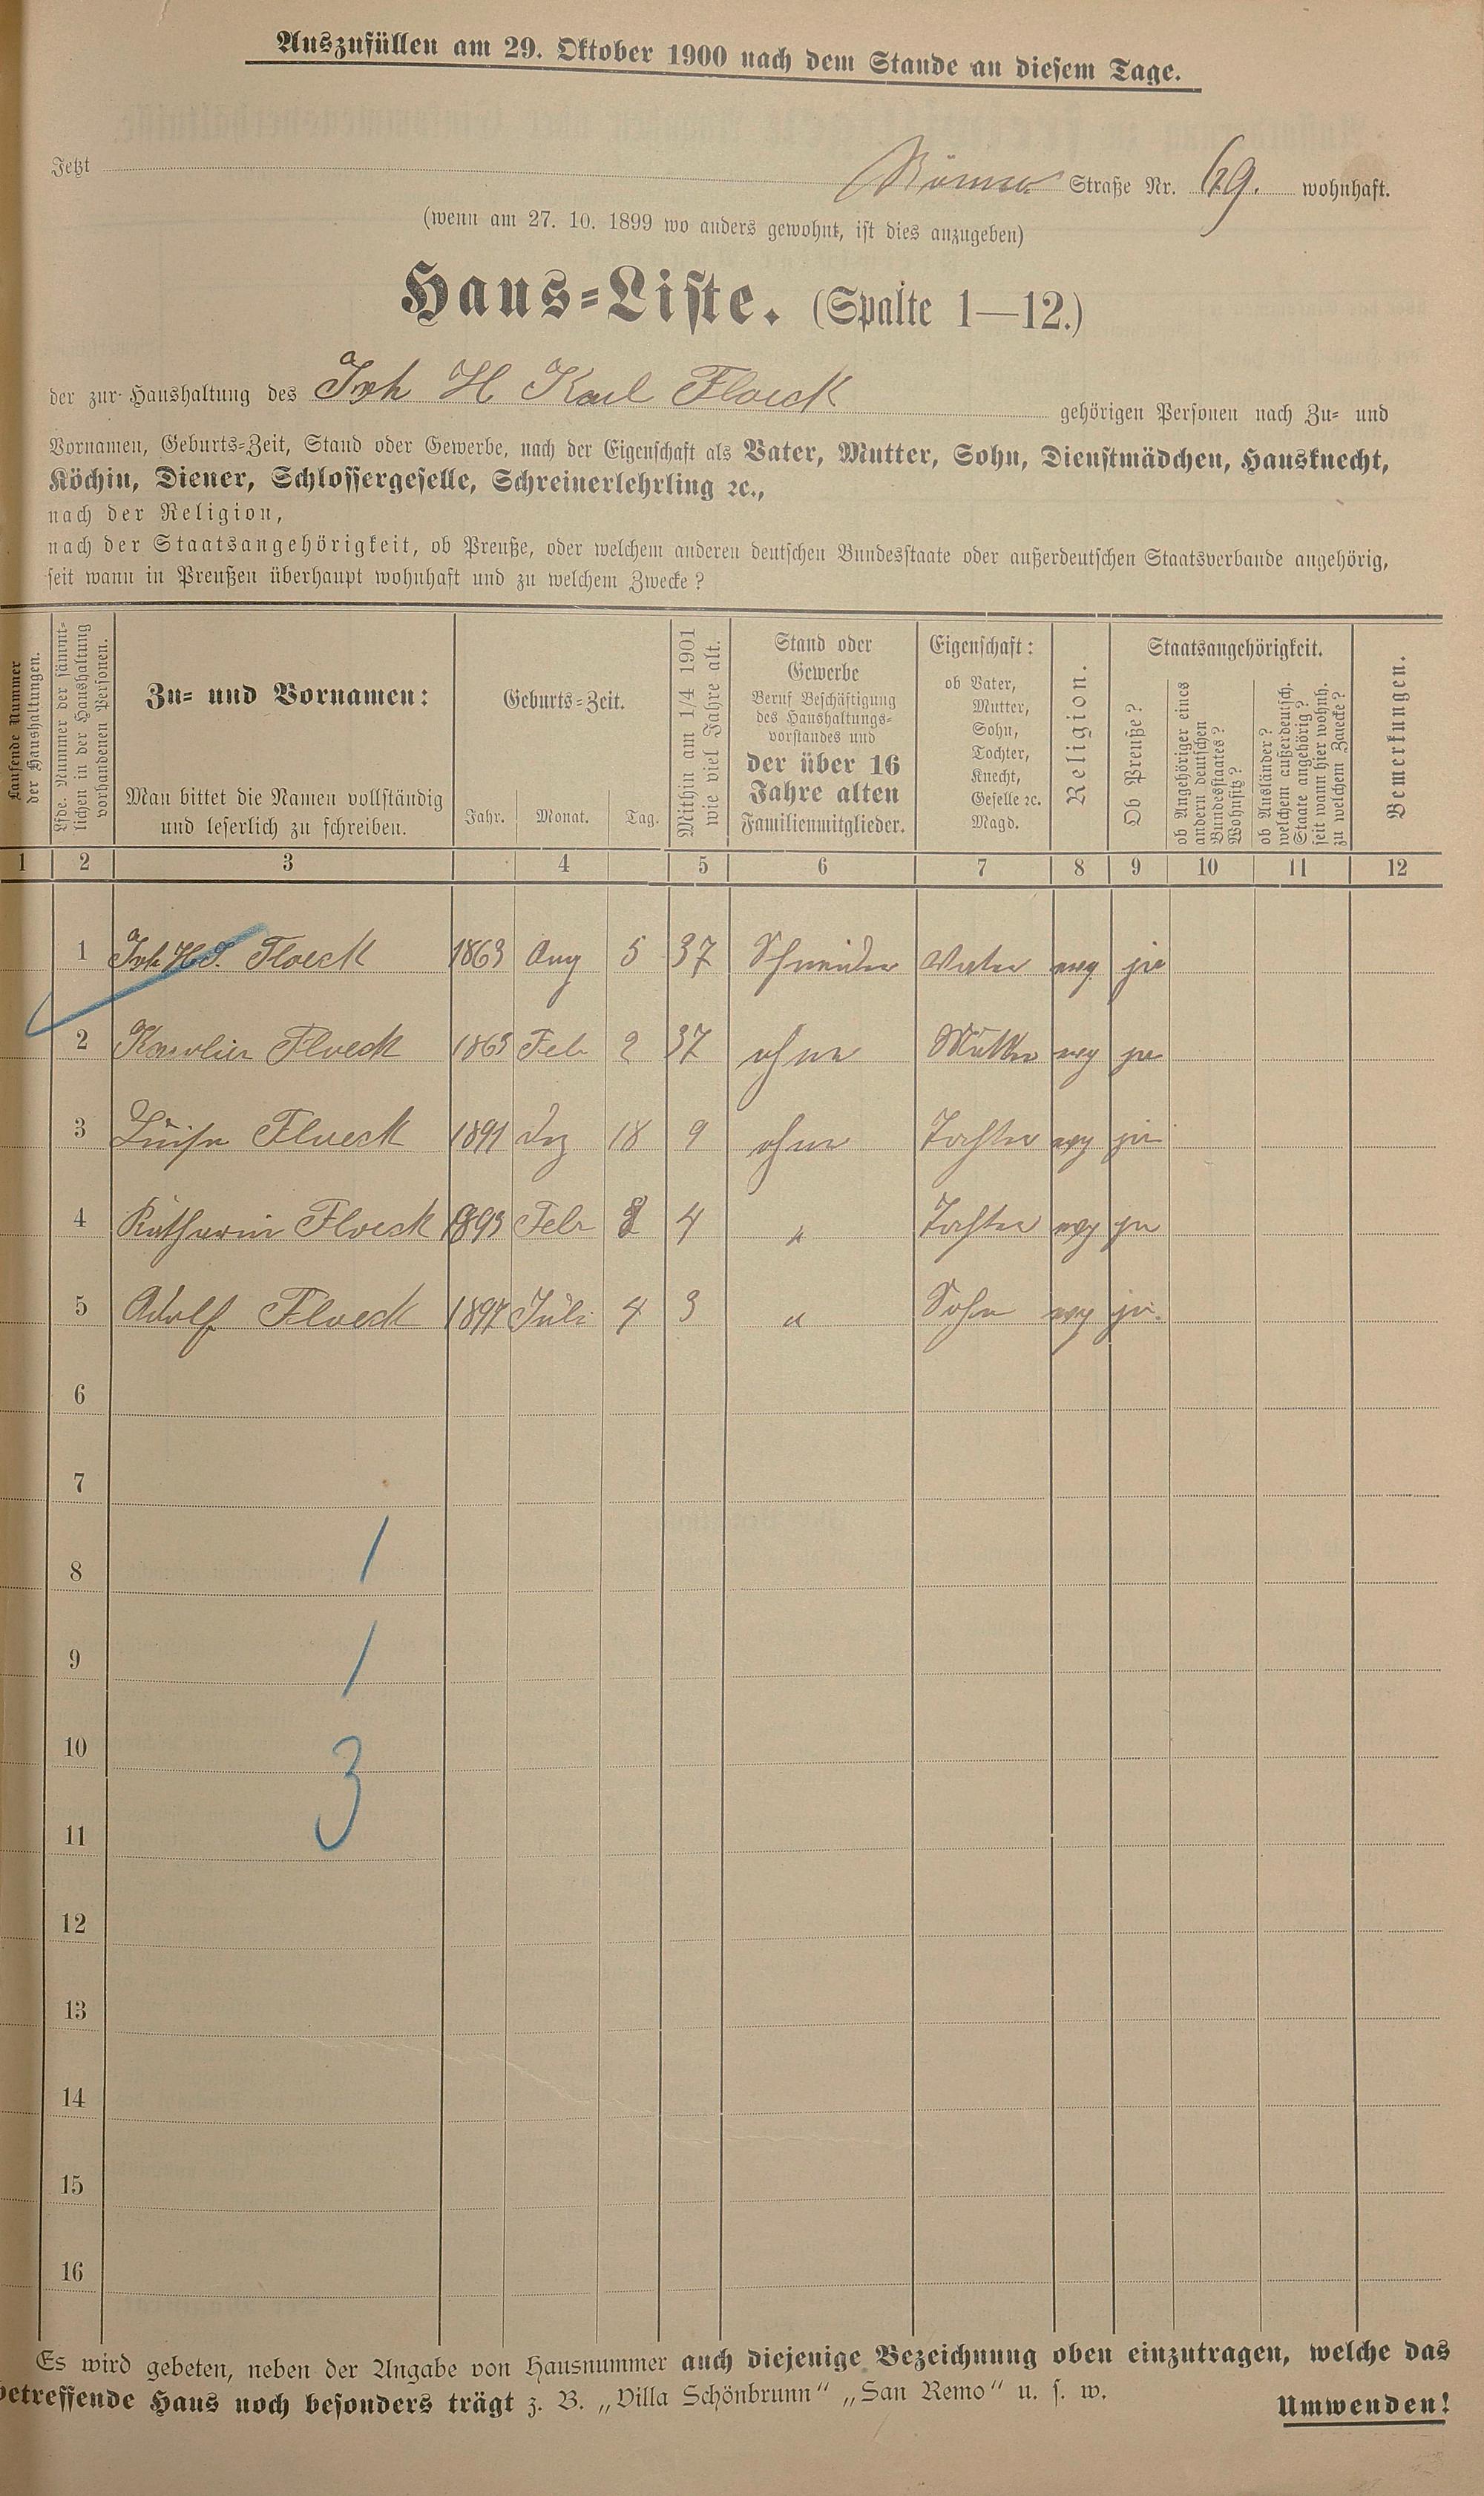 Auszufüllen am 29. Oktober 1900 nach dem Stande an diesem Tage.
Jetzt Straße Nr. 69. wohnhaft.
(wenn am 27. 10. 1899 wo anders gewohnt, ist dies anzugeben)
Haus-Liste. (Spalte 1—12.)
der zur Haushaltung des Joh H Karl Floeck gehörigen Personen nach Zu- und
Vornamen, Geburts-Zeit, Stand oder Gewerbe, nach der Eigenschaft als Vater, Mutter, Sohn, Dienstmädchen, Hausknecht,
Köchin, Diener, Schlossergeselle, Schreinerlehrling ꝛc.,
nach der Religion,
nach der Staatsangehörigkeit, ob Preuße, oder welchem anderen deutschen Bundesstaate oder außerdeutschen Staatsverbande angehörig,
seit wann in Preußen überhaupt wohnhaft und zu welchem Zwecke?
Laufende Nummer
der Haushaltungen.
Lfde. Nummer der sämmt-
lichen in der Haushaltung
vorhandenen Personen.
Zu- und Vornamen:
Man bittet die Namen vollständig
und leserlich zu schreiben.
Geburts-Zeit.
Jahr. Monat. Tag.
Mithin am 1/4 1901
wie viel Jahre alt.
Stand oder
Gewerbe
Beruf Beschäftigung
des Haushaltungs-
vorstandes und
der über 16
Jahre alten
Familienmitglieder.
Eigenschaft:
ob Vater,
Mutter,
Sohn,
Tochter,
Knecht,
Geselle ꝛc.
Magd.
Religion.
Staatsangehörigkeit.
Ob Preuße?
ob Angehöriger eines
andern deutschen
Bundesstaates?
Wohnsitz?
ob Ausländer?
welchem außerdeutsch.
Staate angehörig?
seit wann hier wohnh.
zu welchem Zwecke?
Bemerkungen.
1 2 3 4 5 6 7 8 9 10 11 12
1 Joh H. Floeck 1863 Aug 5 37 Schneider Vater evg ja
2 Karolin Floeck 1863 Feb 2 37 ohne Mutter evg ja
3 Luise Floeck 1891 Dez 18 9 ohne Tochter evg ja
4 Katharin Floeck Febr 4 " Tochter evg ja
5 Adolf Floeck 1897 Juli 4 3 " Sohn evg ja.
6
7
8 1
9 1
10 3
11
12
13
14
15
16
Es wird gebeten, neben der Angabe von Hausnummer auch diejenige Bezeichnung oben einzutragen, welche das
betreffende Haus noch besonders trägt z. B. „Villa Schönbrunn“ „San Remo“ u. s. w.
Umwenden!